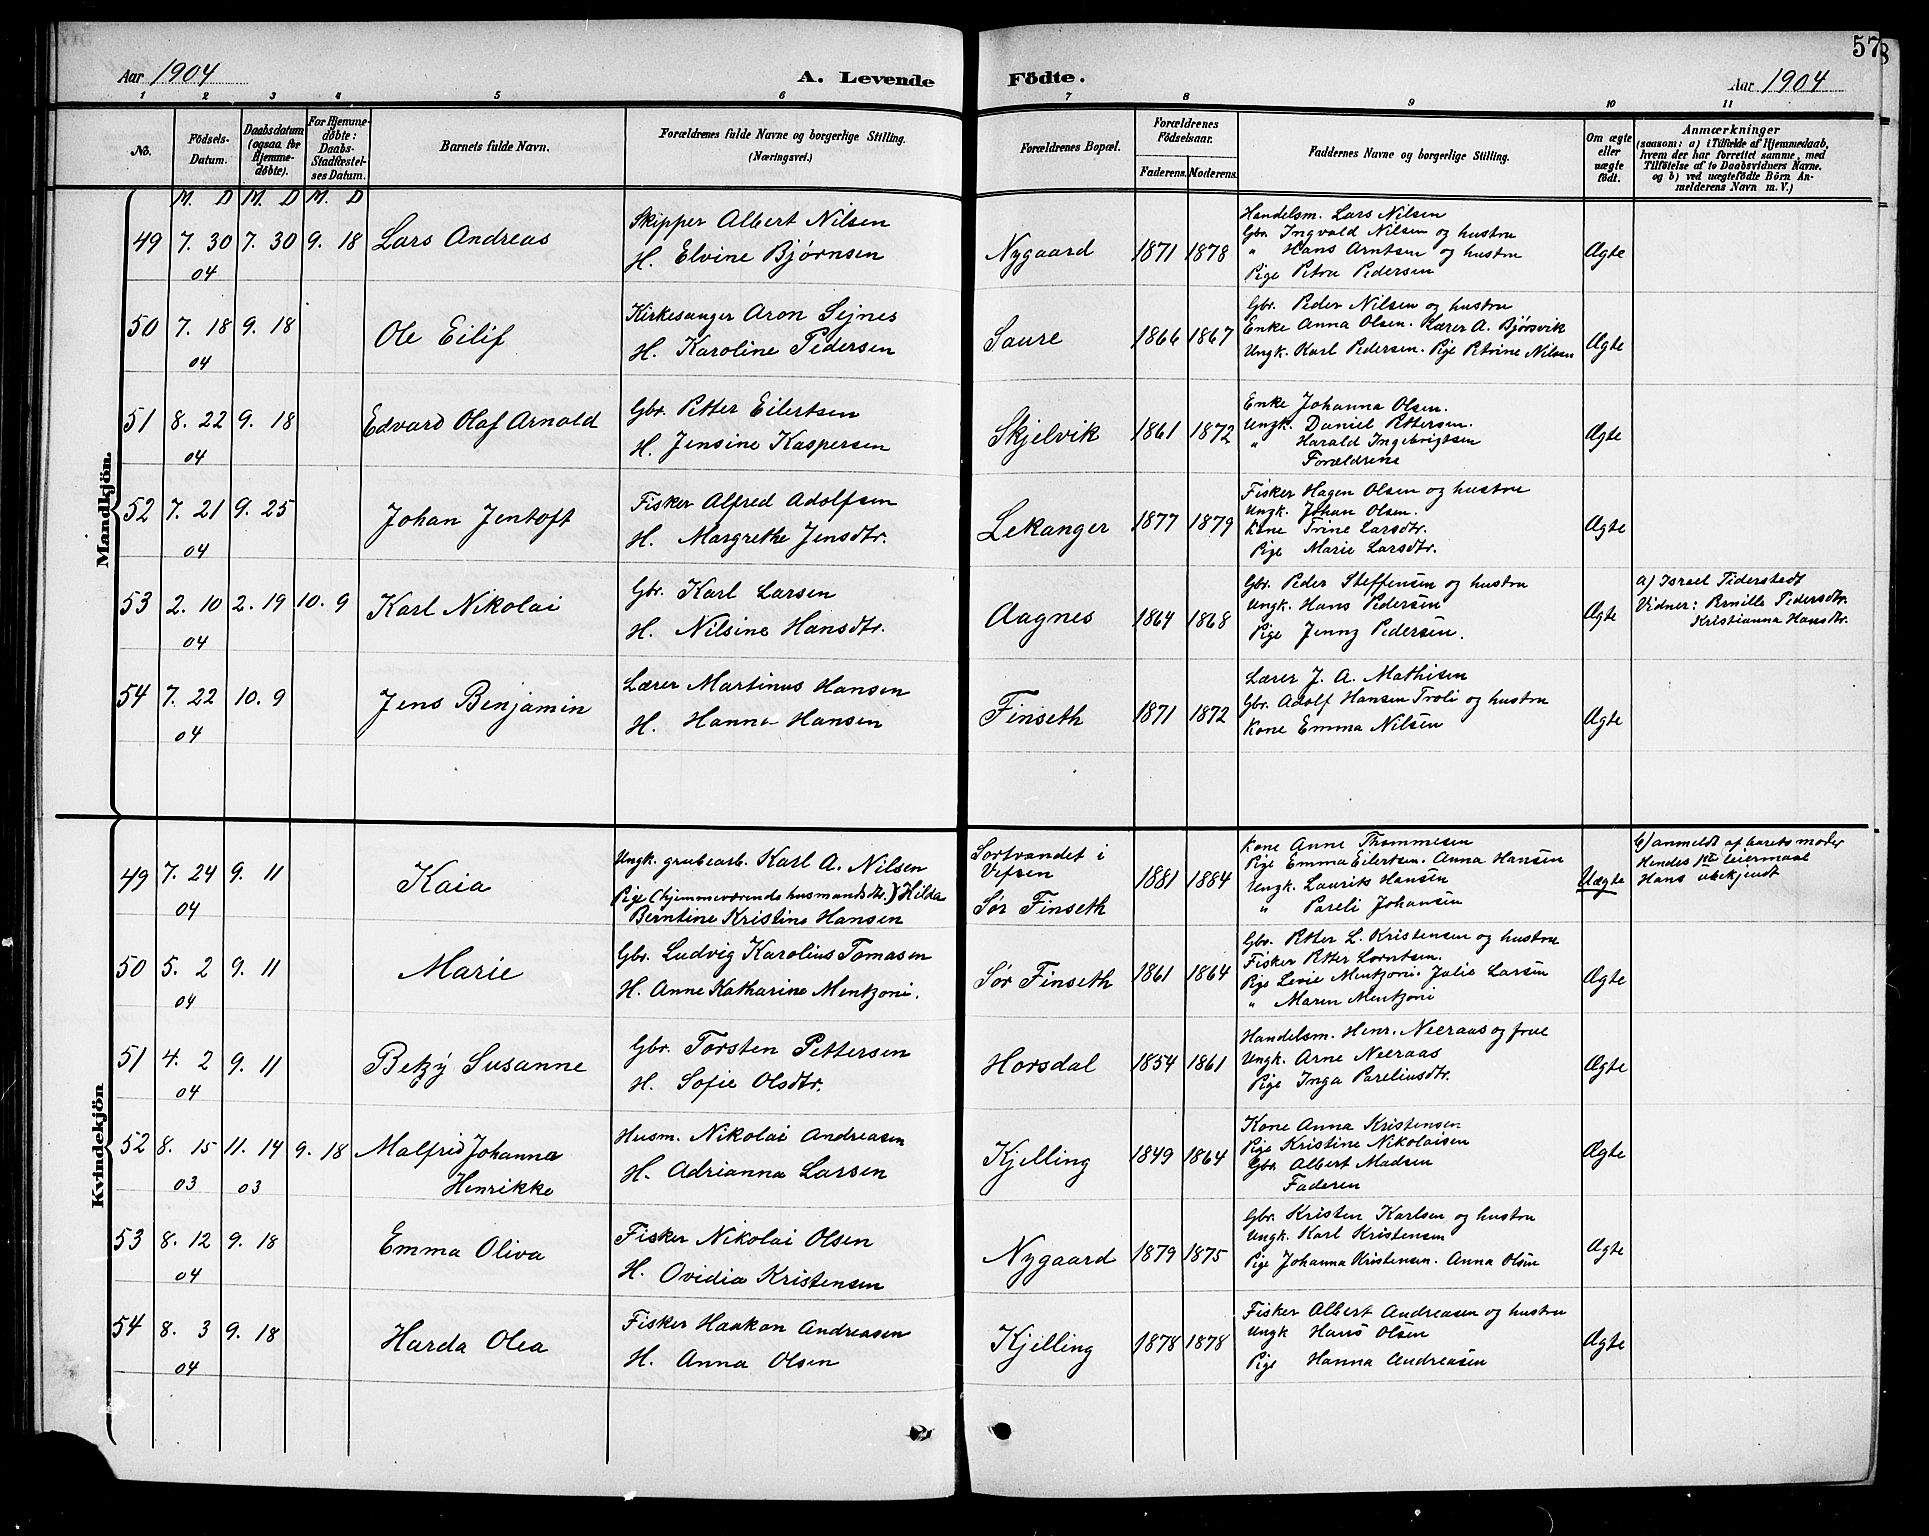 57
8
Aar 1904
A. Levende
Födte.
Aar 1904
1 2 3 4 5 6 7 8 9 10 11
No.
Födsels-
Datum.
Daabsdatum
(ogsaa for
Hjemme-
döbte).
For Hjemme-
döbte:
Daabs-
Stadfæstel-
ses Datum.
Barnets fulde Navn.
Forældrenes fulde Navne og borgerlige Stilling.
(Næringsvei.)
Forældrenes Bopæl.
Forældrenes
Födselsaar.
Faderens. Moderens.
Faddernes Navne og borgerlige Stilling.
Om ægte
eller
uægte
födt.
Anmærkninger
(saasom: a) i Tilfælde af Hjemmedaab,
hvem der har forrettet samme, med
Tilföielse af to Daabsvidners Navne,
og b) ved uægtefödte Börn An-
melderens Navn m. V.)
M. D M. D M. D
Mandkjön.
49 7. 30 7. 30 9. 18
04
Lars Andreas
Skipper Albert Nilsen
H. Elvine Bjørnsen
Nygaard 1871 1878
Handelsm. Lars Nilsen
Gbr. Ingvald Nilsen og hustru
" Hans Arntsen og hustru
Pige Petra Pedersen
Ægte
50 7. 18 9. 18
04
Ole Eilif
Kirkesanger Aron Sejnes
H. Karoline Pedersen
Saure 1866 1867
Gbr. Peder Nilsen og hustru
Enke Anna Olsen. Lærer A. Bjørsvik
Ungk. Karl Pedersen. Pige Petrine Nilsen
Ægte
51 8. 22 9. 18
04
Edvard Olaf Arnold
Gbr. Petter Eilertsen
H. Jensine Kaspersen
Skjelvik 1861 1872
Enke Johanna Olsen.
Ungk. Daniel Pettersen.
" Harald Ingebrigtsen
Forældrene
Ægte
52 7. 21 9. 25
04
Johan Jentoft
Fisker Alfred Adolfsen
H. Margrethe Jensdtr.
Lekanger 1877 1879
Fisker Hagen Olsen og hustru
Ungk. Johan Olsen.
Kone Trine Larsdtr.
Pige Marie Larsdtr.
Ægte
53 2. 10 2. 19 10. 9
04
Karl Nikolai
Gbr. Karl Larsen
H. Nilsine Hansdtr.
Aagnes 1864 1868
Gbr. Peder Steffensen og hustru
Ungk. Hans Pedersen
Pige Jenny Pedersen.
Ægte
a) Israel Tiderstedt
Vidner: Pernille Pedersdtr.
Kristianna Hansdtr.
54 7. 22 10. 9
04
Jens Benjamin
Lærer Martinus Hansen
H. Hanna Hansen
Finseth 1871 1872
Lærer J. A. Mathisen
Gbr. Adolf Hansen Troli og hustru
Kone Emma Nilsen
Ægte
Kvindekjön
49 7. 24 9. 11
04
Kaia
Ungk. grubearb. Karl A. Nilsen
Pige (hjemmeværende husmandsdtr.) Hilda
Berntine Kristine Hansen
Sortvandet i
Vefsen
Sør Finseth
1881 1884
Kone Anne Thommesen
Pige Emma Eilertsen. Anna Hansen
Ungk. Laurits Hansen
" Pareli Johansen
Uægte
b) anmeldt af barets moder
Hendes 1ste leiermaal
Hans ubekjendt
50 5. 2 9. 11
04
Marie
Gbr. Ludvig Karolius Tomasen
H. Anne Katharine Mentzoni.
Sør Finseth 1861 1864
Gbr. Petter L. Kristensen og hustru
Fisker Petter Lorntsen.
Pige Levie Mentzoni. Julie Larsen
" Maren Mentzoni
Ægte
51 4. 2 9. 11
04
Betzy Susanne
Gbr. Torsten Pettersen
H. Sofie Olsdtr.
Horsdal 1854 1861
Handelsm. Henr. Neeraas og frue
Ungk. Arne Neeraas
Pige Inga Pareliusdtr.
Ægte
52 8. 15 11. 14 9. 18
03 03
Malfrid Johanna
Henrikke
Husm. Nikolai Andreasen
H. Adrianna Larsen
Kjelling 1849 1864
Kone Anna Kristensen
Pige Kristine Nikolaisen
Gbr. Albert Madsen
Faderen
Ægte
53 8. 12 9. 18
04
Emma Oliva
Fisker Nikolai Olsen
H. Ovidia Kristensen
Nygaard 1879 1875
Gbr. Kristen Karlsen og hustru
Ungk. Karl Kristensen
Pige Johanna Kristensen. Anna Olsen
Ægte
54 8. 3 9. 18
04
Harda Olea
Fisker Haakon Andreasen
H. Anna Olsen
Kjelling 1878 1878
Fisker Albert Andreasen og hustru
Ungk Hans Olsen
Pige Hanna Andreasen
Ægte